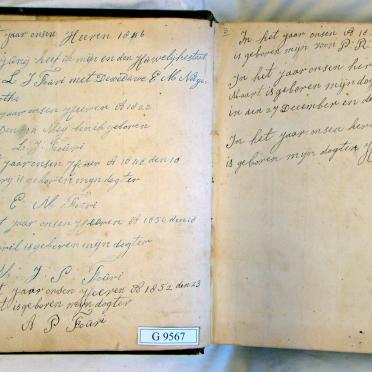 jaar onsen Heeren 1846
heef ik mijn en den Huwelijkestaat
L J Fouri met Demedawe E M Nilge
jaar onsen Heeren A 1822
ben ik geboren
L. J. Fouri
jaar onsen Heeren A 1848 den 10
is geboren mijn dogter
E M. Fouri
jaar onsen Heeren A 1850 den 18
April is geboren mijn dogter
J S Fouri
jaar onsen Heeren A 1852 den 23
is geboren mijn dogter
A P Fouri
G 9567
In het jaar onsen
is geboren mijn zoon P. R.
In het jaar onsen here
Maart is geboren mijn dog
in den 27 December en de
In het jaar onsen here
is geboren mijn dogter